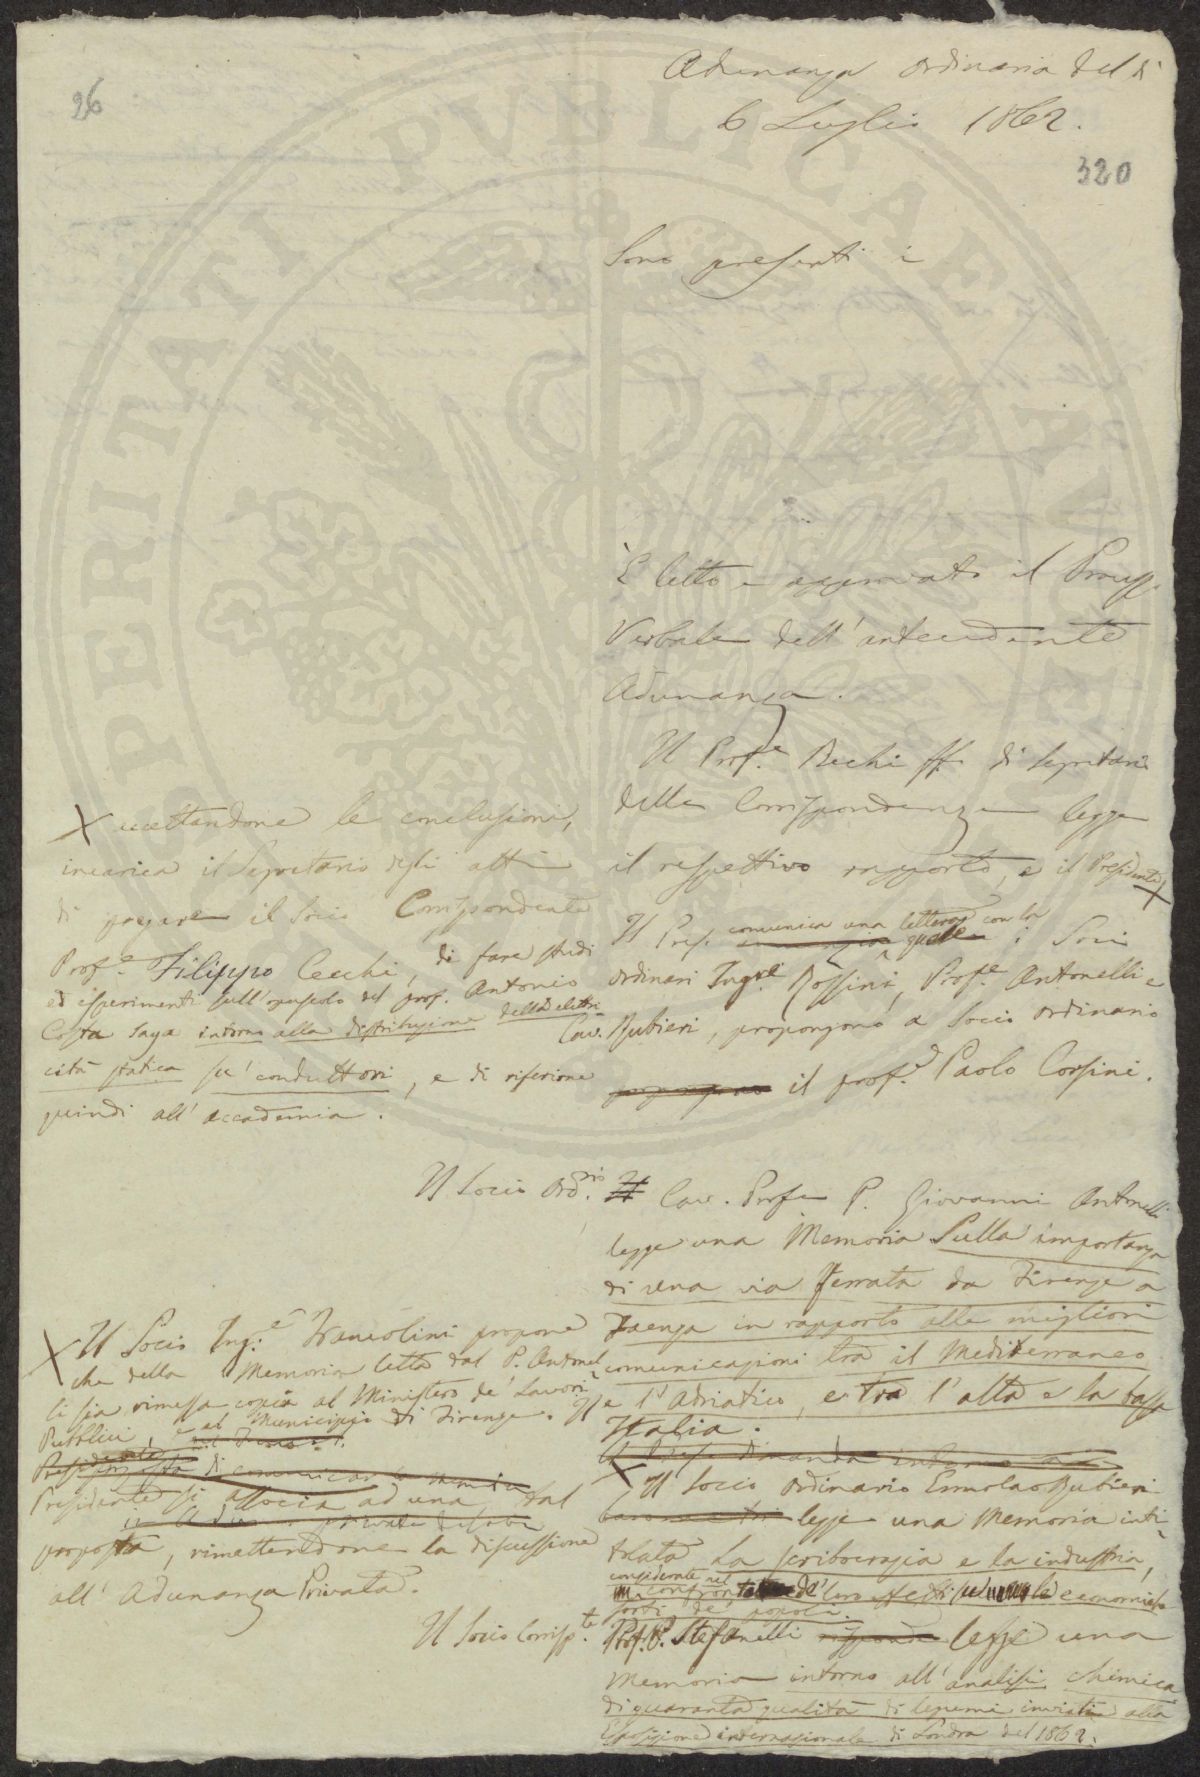 26
Adunanza ordinaria del dì
6 Luglio 1862.
320
Sono presenti i
È letto e approvato il Process.
Verbale dell'antecedente
Adunanza.
Il Prof.e Bechi ff. di Segretario
delle Corrispondenze legge
il respettivo rapporto, e il Presidente
X
X accettandone le conclusioni,
incarica il Segretario degli atti
di pregare il Socio Corrispondente
Prof.e Filippo Cecchi, di fare studi
ed esperimenti sull'opuscolo del prof. Antonio
Costa Saya intorno alla distribuzione della elettri
cità statica su' conduttori, e di riferirne
quindi all'accademia.
Il Pres. comunica una lettera con la
quale i Soci
ordinari Ing.re Rossini, Prof.e Antonelli e
Cav. Rubieri, propongono a Socio ordinario
il prof.e Paolo Corsini.
Il Socio Ord.rio Cav. Prof.e P. Giovanni Antonelli
legge una Memoria Sulla importanza
di una via ferrata da Firenze a
Faenza in rapporto alle migliori
comunicazioni tra il Mediterraneo
e l'Adriatico, e tra l'alta e la bassa
Italia.
X Il Socio Ing.e Francolini propone
che della Memoria letta dal P. Antonel
li sia rimessa copia al Ministero de' Lavori
Pubblici, e al Municipio di Firenze. Il
Presidente si associa ad una tal
proposta, rimettendone la discussione
all'Adunanza Privata.
X Il Socio ordinario Ermolao Rubieri
legge una Memoria inti
tolata La scribocrazia e la industria,
considerate nel
confronto de' loro effetti su le economiche
sorti de' popoli.
Il Socio Corrisp.te Prof. P. Stefanelli legge una
Memoria intorno all'analisi chimica
di quaranta qualità di legumi inviati alla
Esposizione internazionale di Londra del 1862.
PERITATI PVBLICAE